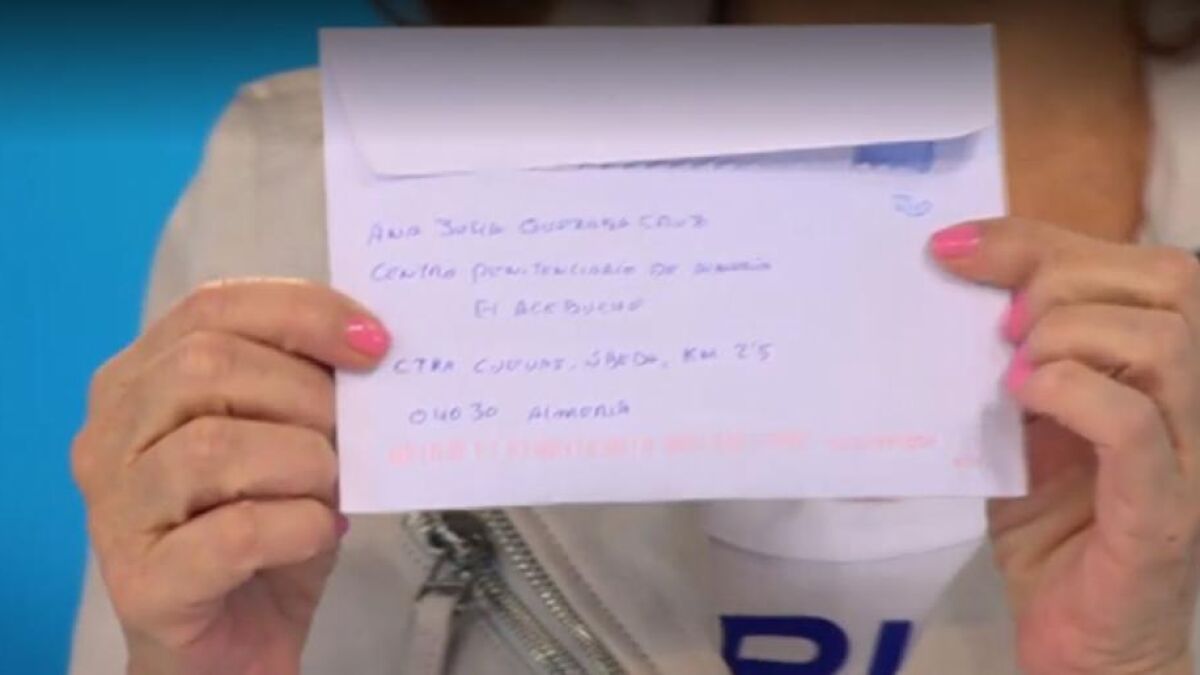 ANA JULIA QUEZADA CRUZ
CENTRO PENITENCIARIO DE ALMERIA
El ACEBUCHE
CTRA CUEVAS, ÚBEDA, KM 2'5
04030 ALMERIA